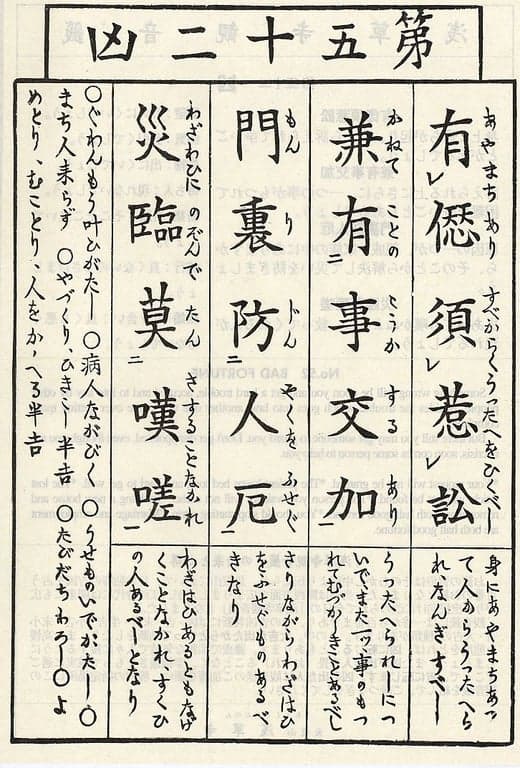 第五十二凶
あやまち あり すべからくうつたへをひくべし
有レ僁須レ惹レ訟
かねて ことの こうか する あり
兼有二事交加一
もん り じん やくを ふせぐ
門裏防二人厄一
わざわひに のぞんで たん さすることなかれ
災臨莫二嘆嗟一
身にあやまちあつ
て人からうつたへら
れなんぎすべし
うつたへられしにつ
いでまた一ツ事のもつ
れてむづかしきことあるべし
さりながらわざはひ
をふせぐものあるべ
きなり
わざはひあるともなげ
くことなかれすくひ
の人あるべしとなり
○ぐわんもう叶ひがたし ○病人ながびく ○うせものいでがたし ○
まち人来らず ○やづくりひきこし半吉 ○たびだちわろし ○よ
めとり、むことり、人をかゝへる半吉